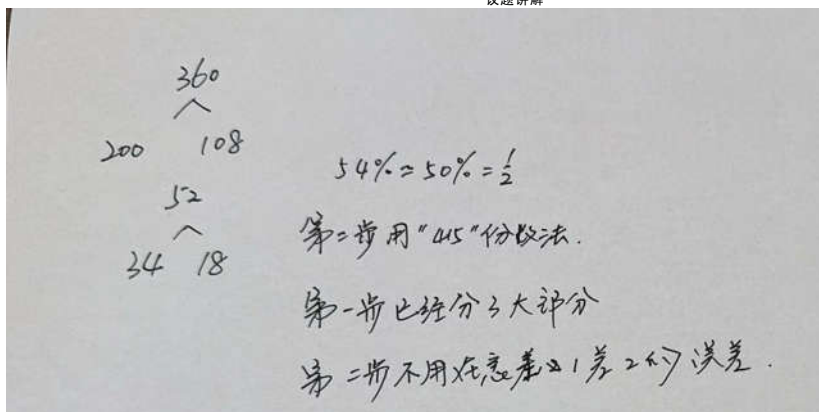 议题讲解
360
200 108
52
34 18
54%≈50%=1/2
第二步用"415"份数法.
第一步已经分了大部分
第二步不用在意差1差2的误差.